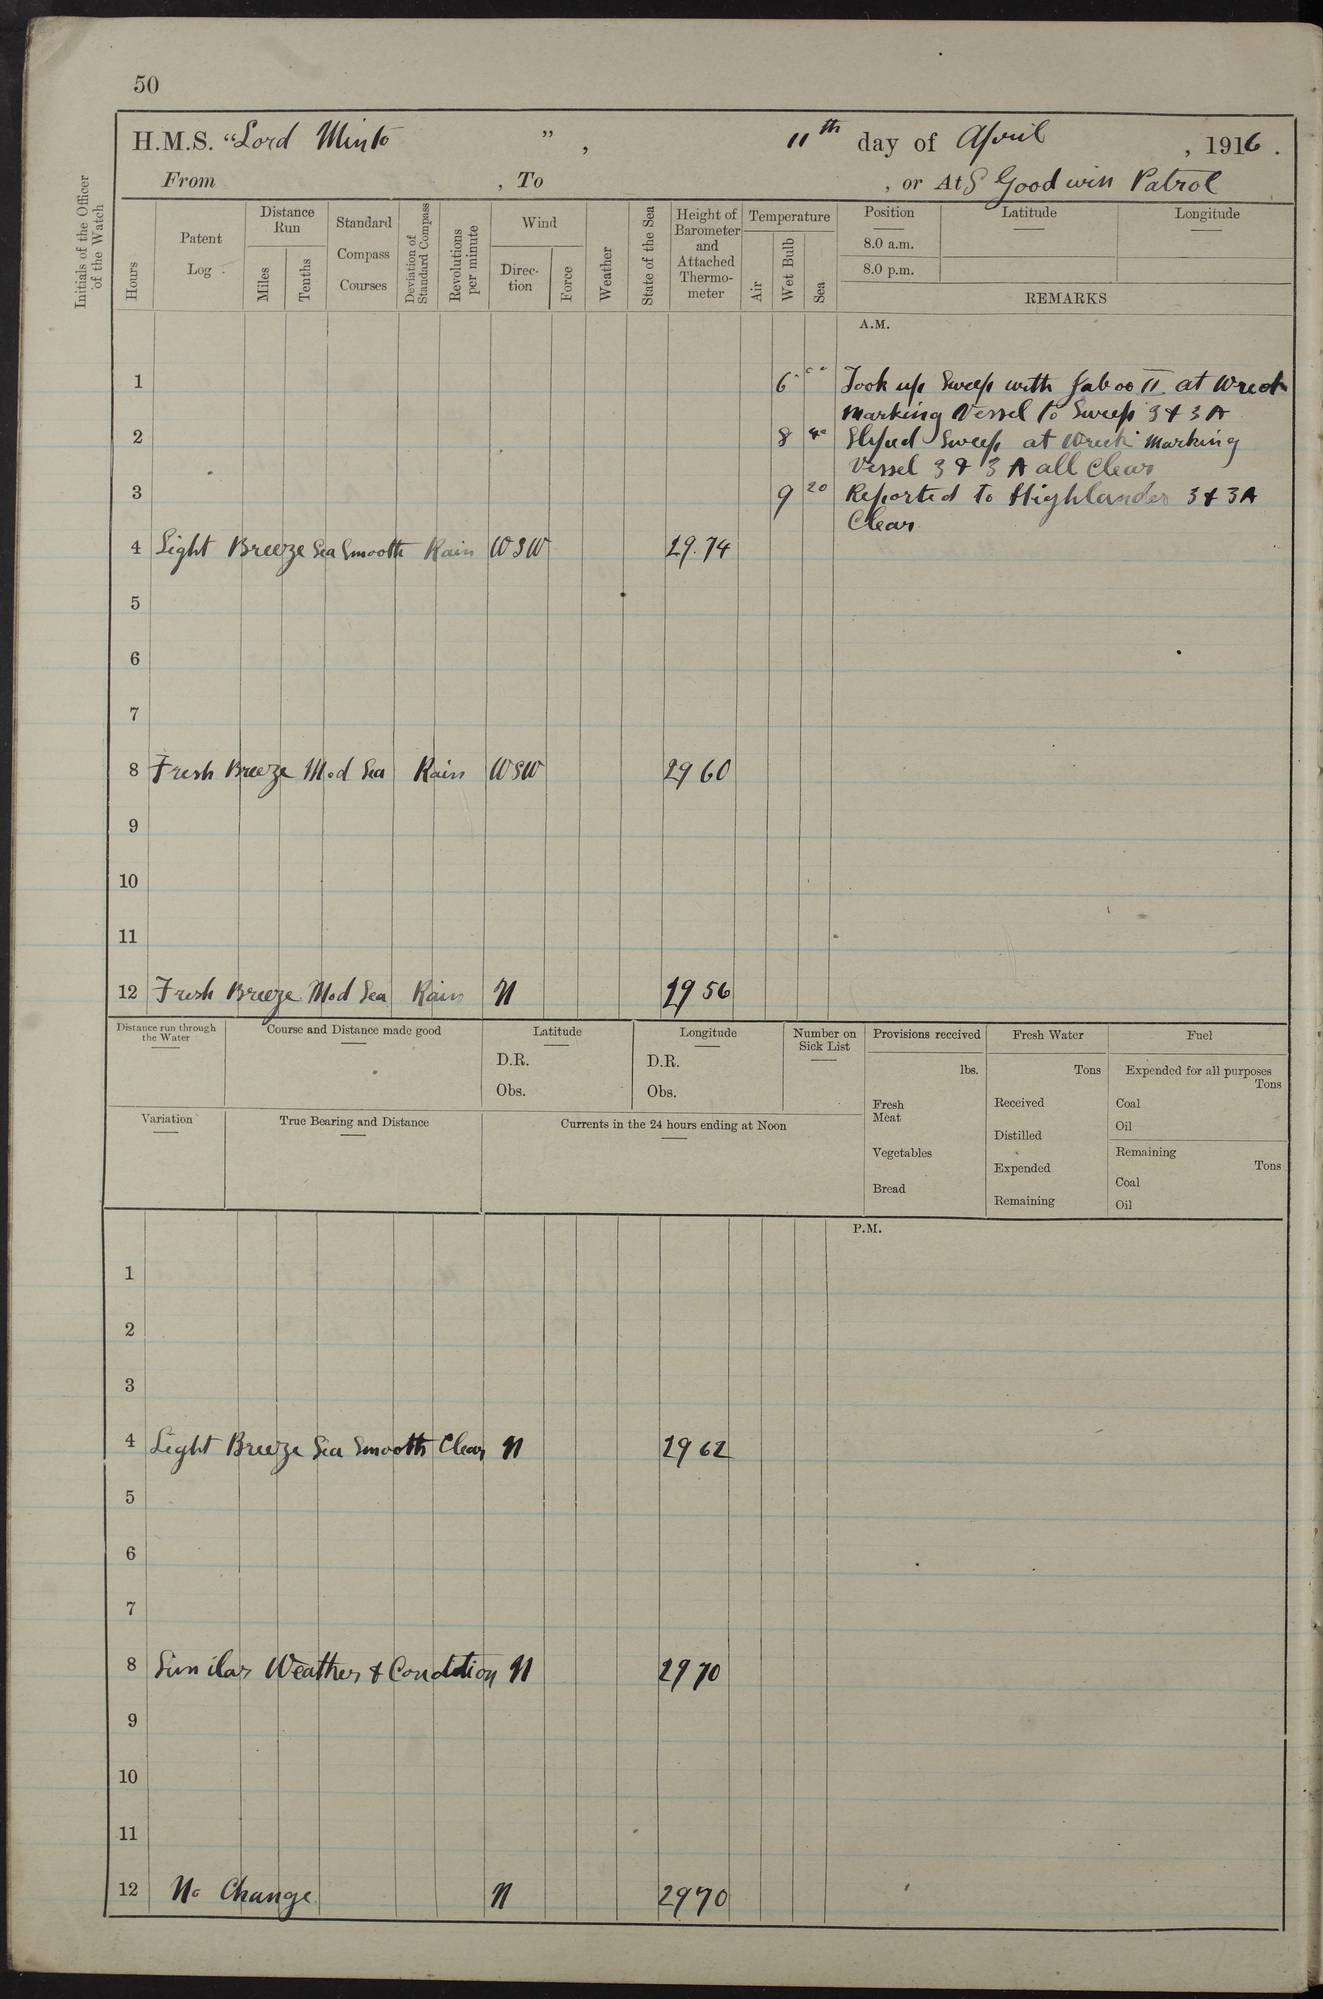 50
H.M.S. "Lord Minto ", 11th day of April, 1916.
From , To , or At S Goodwin Patrol
Initials of the Officer of the Watch
Hours
Patent Log
Distance Run
Miles
Tenths
Standard Compass Courses
Deviation of Standard Compass
Revolutions per minute
Wind
Direction
Force
Weather
State of the Sea
Height of Barometer and Attached Thermometer
Temperature
Air
Wet Bulb
Sea
Position
8.0 a.m.
8.0 p.m.
Latitude
Longitude
REMARKS
A.M.
1 6 00 Took up Sweep with II at Wreck
Marking Vessel to Sweep 3 & 3A
2 8 40 Sliped Sweep at Wreck Marking
Vessel 3 & 3A all Clear
3 9 20 Reported to Highlander 3 & 3A
Clear
4 Light Breeze Sea Smooth Rain WSW 29.74
5
6
7
8 Fresh Breeze Mod Sea Rain WSW 29 60
9
10
11
12 Fresh Breeze Mod Sea Rain N 29 56
Distance run through the Water
Course and Distance made good
Latitude
D.R.
Obs.
Longitude
D.R.
Obs.
Number on Sick List
Provisions received
lbs.
Fresh Meat
Vegetables
Bread
Fresh Water
Tons
Received
Distilled
Expended
Remaining
Fuel
Expended for all purposes
Tons
Coal
Oil
Remaining
Tons
Coal
Oil
Variation
True Bearing and Distance
Currents in the 24 hours ending at Noon
P.M.
1
2
3
4 Light Breeze Sea Smooth Clear N 29 62
5
6
7
8 Similar Weather & Condition N 29 70
9
10
11
12 No Change N 29 70